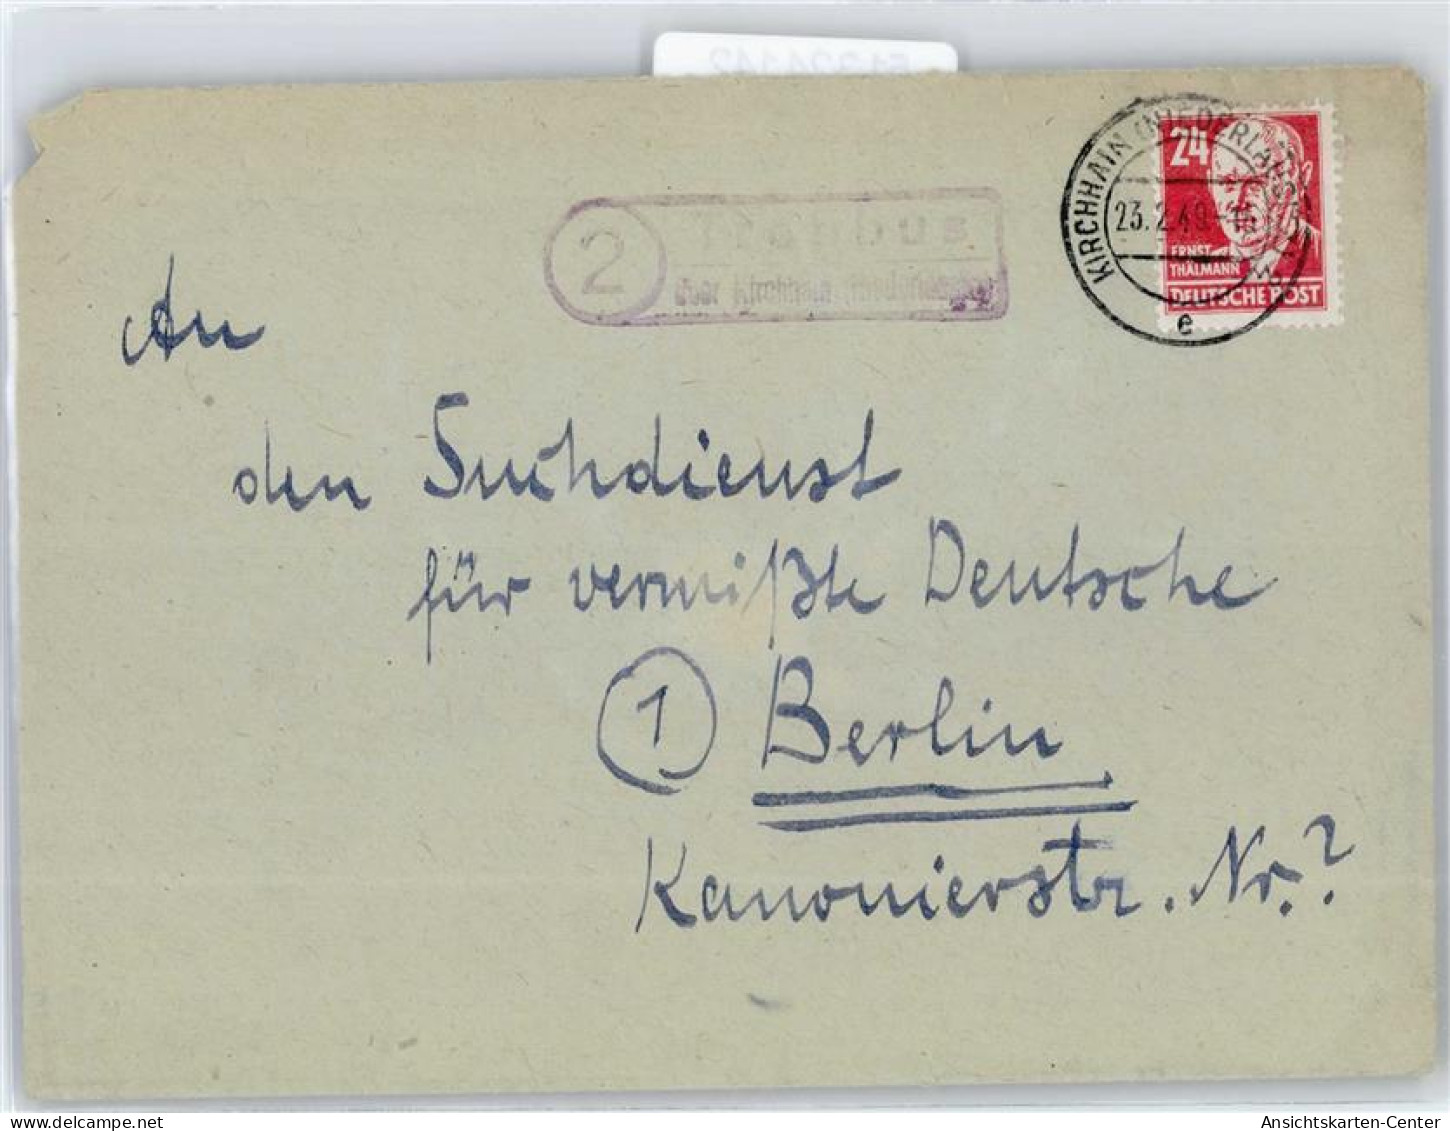 KIRCHHAIN (NIEDERLAUSITZ)
23.2.49
e
24
ERNST
THÄLMANN
DEUTSCHE POST
2
über Kirchhain (Niederlausitz)
An
den Suchdienst
für vermißte Deutsche
1 Berlin
Kanonierstr. Nr.?
Ansichtskarten-Center